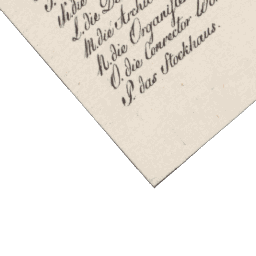 K. die
L. die De
M. die Archid
N. die Organist
O. die Conrector Wo
P. das Stockhaus.